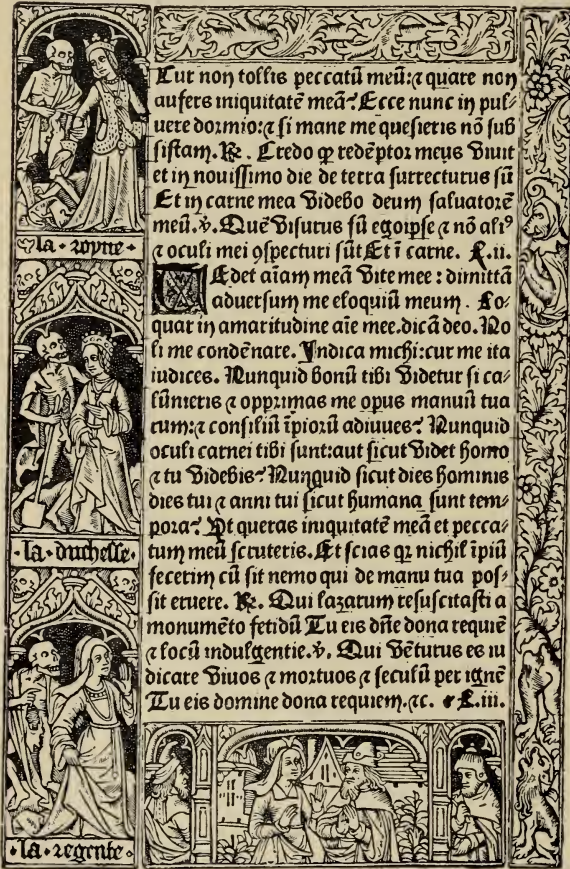 Cur non tollis peccatū meū: ⁊ quare non
aufers iniquitatē meā? Ecce nunc in pul-
uere dormio: ⁊ si mane me quesieris nō sub
sistam. ℟. Credo ꝙ redēptor meus viuit
et in nouissimo die de terra surrecturus sū
Et in carne mea videbo deum saluatorē
meū. ℣. Quē visurus sū egoipse ⁊ nō aliꝰ
⁊ oculi mei ꝯspecturi sūt Et ī carne. L.ii.
Tedet aīam meā vite mee: dimittā
aduersum me eloquiū meum. Lo-
quar in amaritudine aīe mee. dicā deo. No
li me condēnare. Indica michi: cur me ita
iudices. Nunquid bonū tibi videtur si ca-
lūnieris ⁊ opprimas me opus manuū tua
rum: ⁊ consiliū īpiorū adiuues? Nunquid
oculi carnei tibi sunt: aut sicut videt homo
⁊ tu videbis? Nunquid sicut dies hominis
dies tui ⁊ anni tui sicut humana sunt tem-
pora? Ut queras iniquitatē meā et pecca-
tum meū scruteris. Et scias qꝛ nichil īpiū
fecerim cū sit nemo qui de manu tua pos-
sit eruere. ℟. Qui lazarum resuscitasti a
monumēto fetidū Tu eis dn̄e dona requiē
⁊ locū indulgentie. ℣. Qui vēturus es iu
dicare viuos ⁊ mortuos ⁊ seculū per ignē
Tu eis domine dona requiem. ⁊c. L.iii.
la royne
la duchesse
la regente